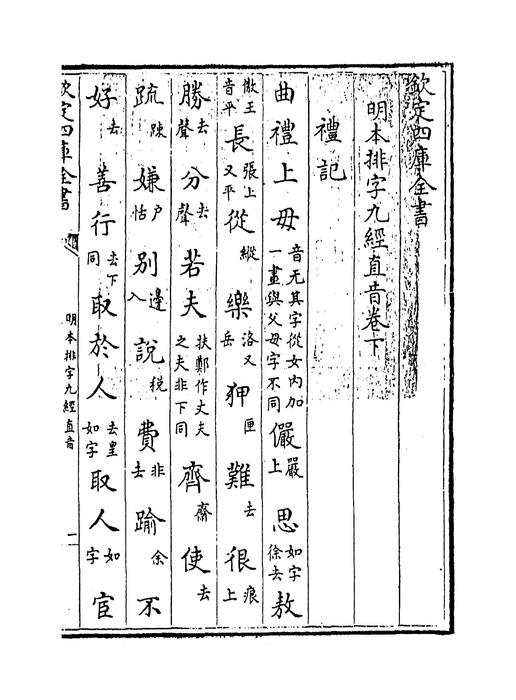 欽定四庫全書
明本排字九經直音卷下
禮記
曲禮上毋音无其字從女內加一畫與父母字不同儼嚴上思如字徐去敖
傲王音平長張上又平從縱樂洛又岳狎匣難去很痕上
勝去聲分去聲若夫扶鄭作丈夫之夫非下同齊齋使去
疏踈嫌戶怗別邊入說稅費非去踰余不
好去善行去下同取於人去皇如字取人如字宦
欽定四庫全書
明本排字九經直音
一